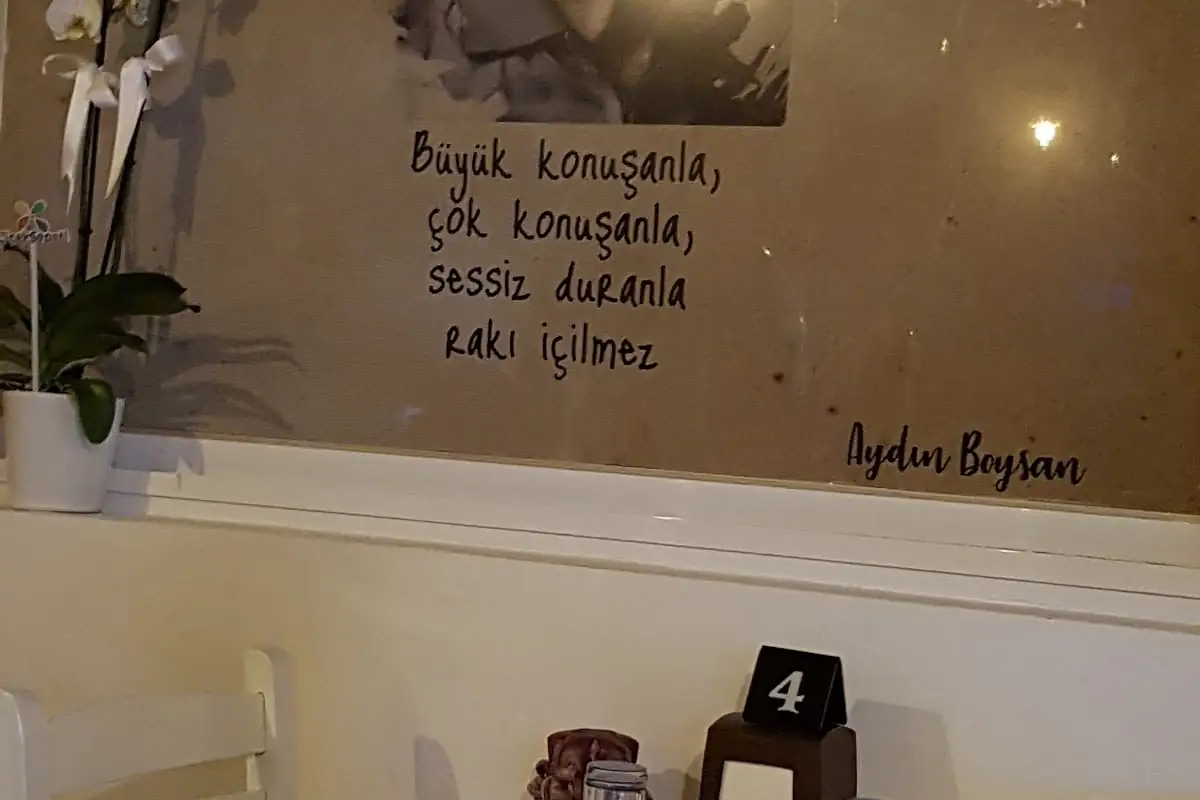 Büyük konuşanla,
çok konuşanla,
sessiz duranla
rakı içilmez
Aydın Boysan
4